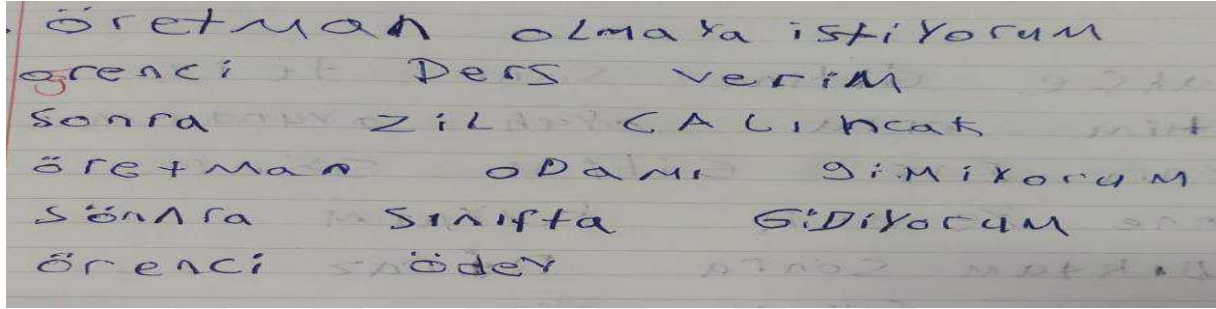 öretman olmaya istiyorum
orenci Ders verim
sonra ziL CALıncak
öretman oDamı gimiyorum
sönnra sınıfta GiDiyorum
örenci ödev